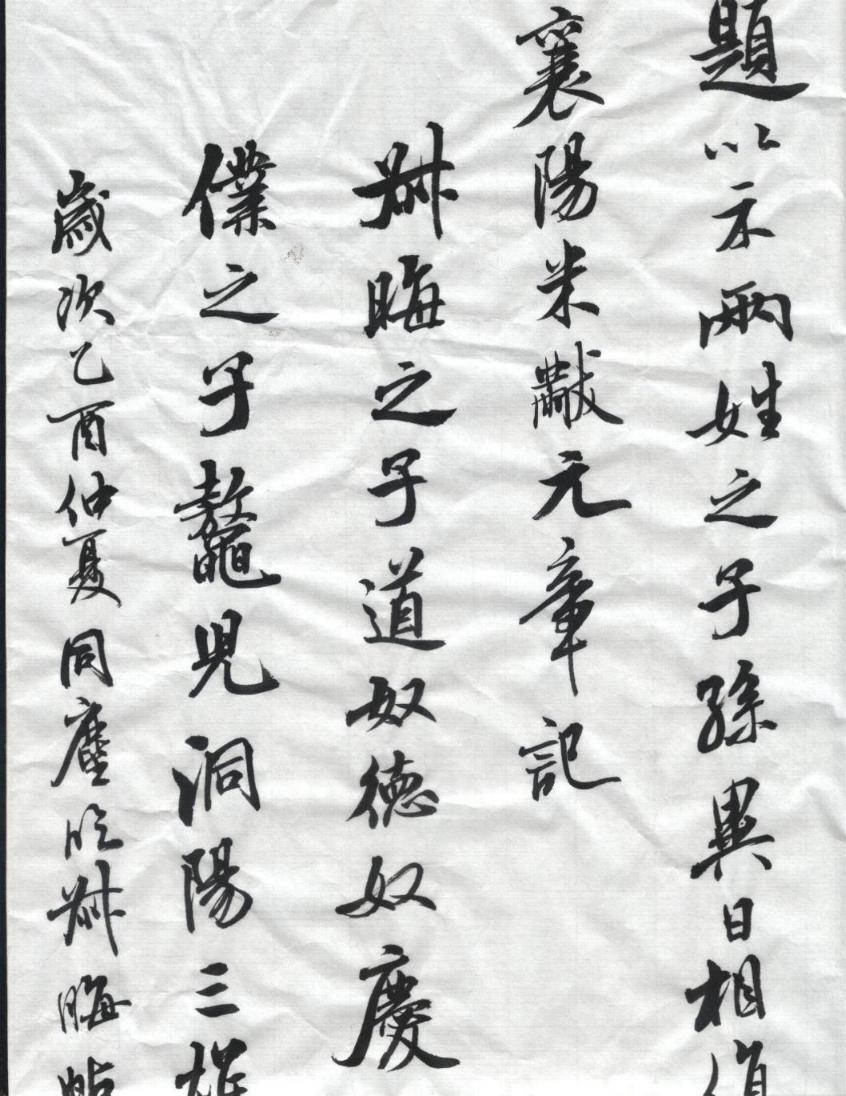 題以示兩姓之子孫異日相值
襄陽米黻元章記
叔晦之子道奴德奴慶
僕之子鼇兒洞陽三雄
歲次乙酉仲夏同塵臨叔晦帖